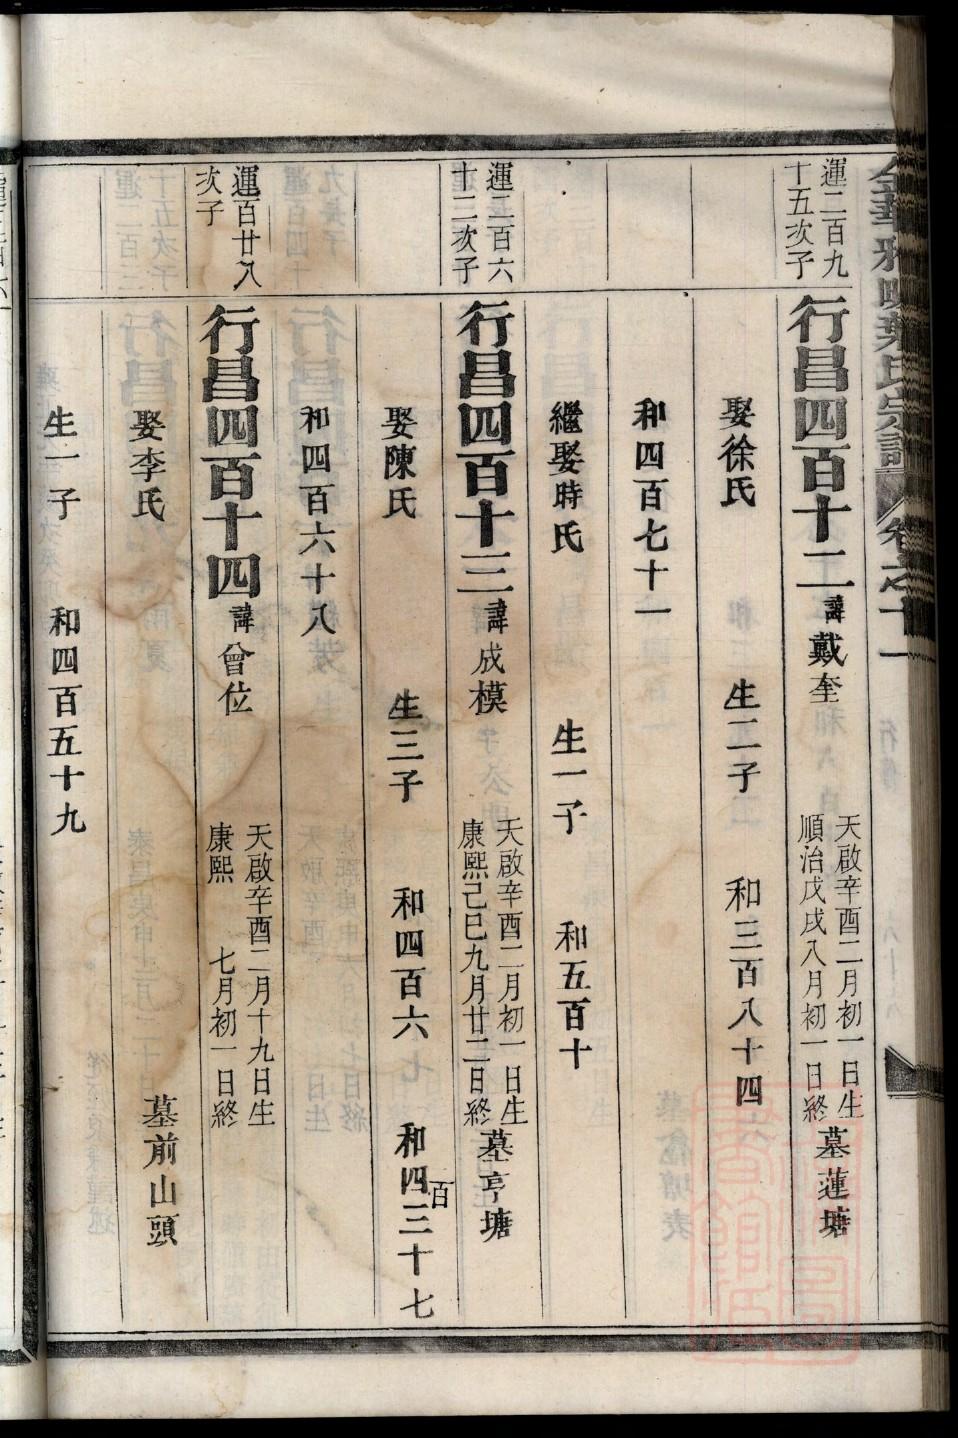 金華雅畈葉氏宗譜 卷之十一
運二百九
十五次子
行昌四百十二 諱戴奎 天啟辛酉二月初一日生
順治戊戌八月初一日終 墓蓮塘
娶徐氏 生二子 和三百八十四
和四百七十一
繼娶時氏 生一子 和五百十
運二百六
十二次子
行昌四百十三 諱成模 天啟辛酉二月初一日生
康熙己巳九月廿二日終 墓亨塘
娶陳氏 生三子 和四百六七 和四百三十七
和四百六十八
運百廿八
次子
行昌四百十四 諱曾位 天啟辛酉二月十九日生
康熙 七月初一日終
娶李氏 墓前山頭
生一子 和四百五十九